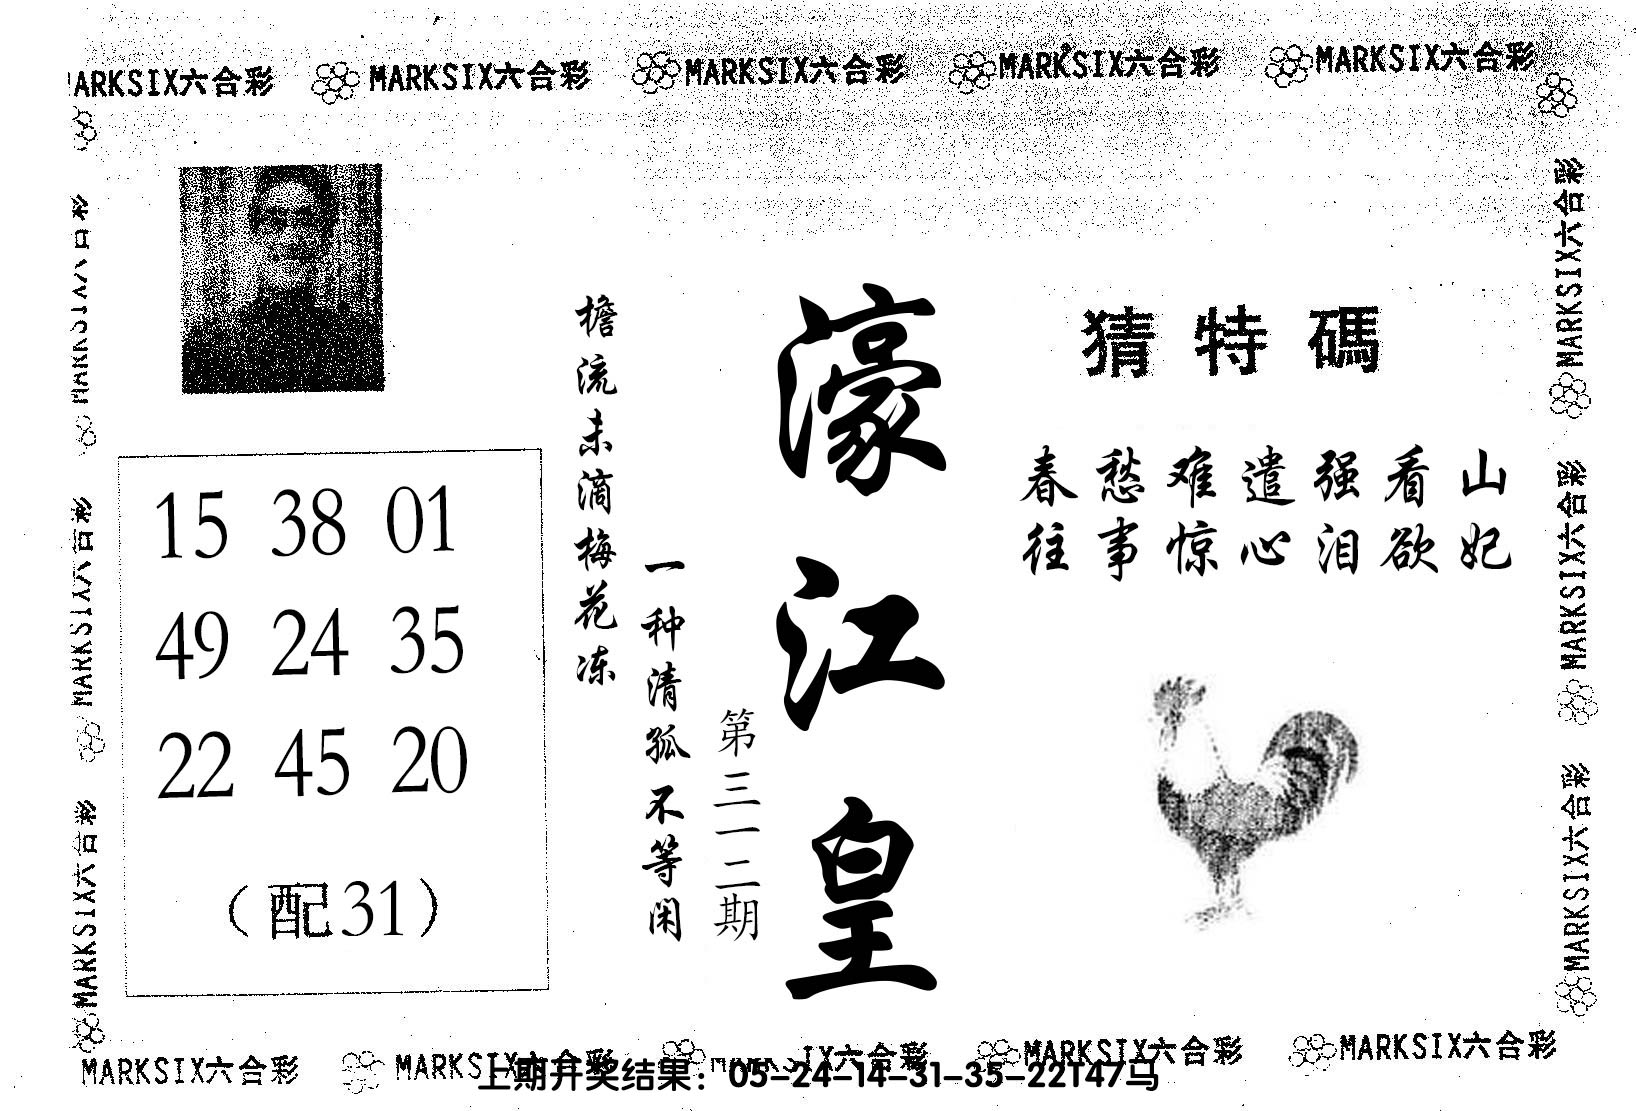 MARKSIX六合彩 MARKSIX六合彩 MARKSIX六合彩 MARKSIX六合彩 MARKSIX六合彩
猜特碼
春愁难遣强看山
往事惊心泪欲妃
濠江皇
第三一二期
檐流未滴梅花冻
一种清孤不等闲
15 38 01
49 24 35
22 45 20
（配31）
MARKSIX六合彩
MARKSIX六合彩
MARKSIX六合彩
MARKSIX六合彩
MARKSIX六合彩
MARKSIX六合彩
MARKSIX六合彩 MARKSIX六合彩 IX六合彩 MARKSIX六合彩 MARKSIX六合彩
上期开奖结果：05-24-14-31-35-22T47马